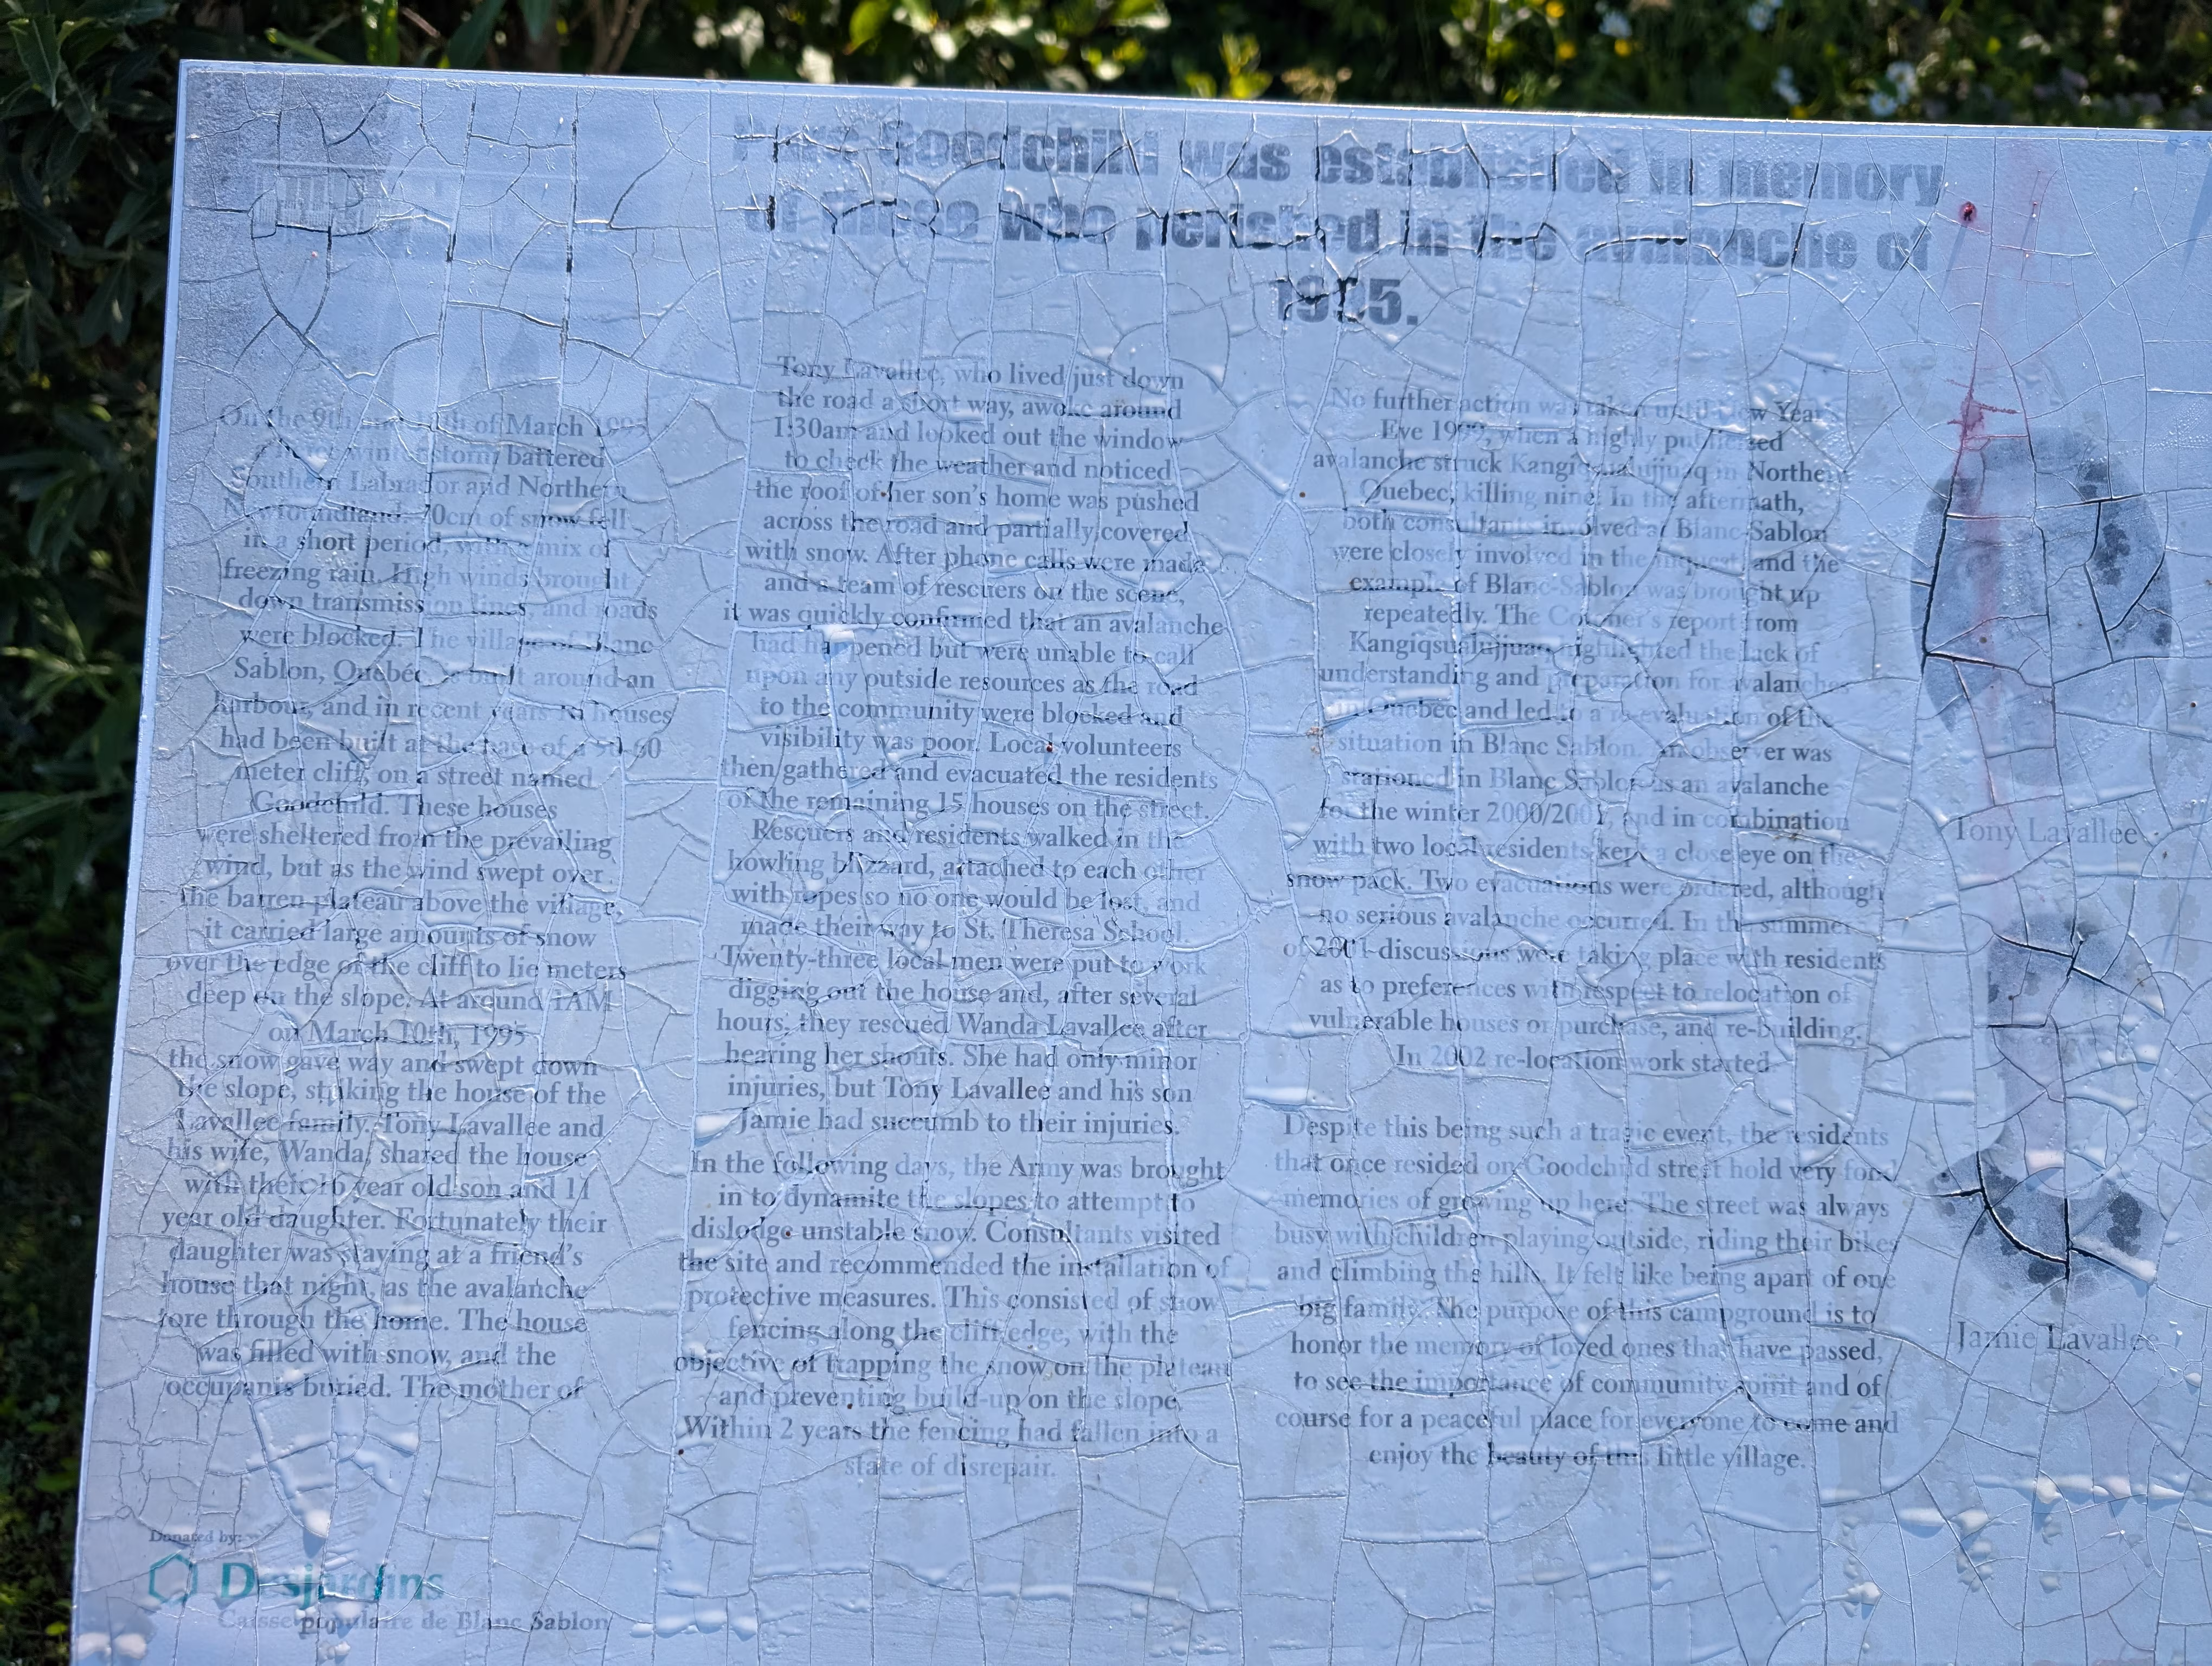 Parc Goodchild was established in memory
of those who perished in the avalanche of
1995.
On the 9th and 10th of March 1995
a fierce winter storm battered
Southern Labrador and Northern
Newfoundland. 70cm of snow fell
in a short period, with a mix of
freezing rain. High winds brought
down transmission lines, and roads
were blocked. The village of Blanc
Sablon, Quebéc is built around an
harbour, and in recent years houses
had been built at the base of a 50-60
meter cliff, on a street named
Goodchild. These houses
were sheltered from the prevailing
wind, but as the wind swept over
the barren plateau above the village,
it carried large amounts of snow
over the edge of the cliff to lie meters
deep on the slope. At around 1AM
on March 10th, 1995
the snow gave way and swept down
the slope, striking the house of the
Lavallee family. Tony Lavallee and
his wife, Wanda, shared the house
with their 16 year old son and 11
year old daughter. Fortunately their
daughter was staying at a friend's
house that night, as the avalanche
tore through the home. The house
was filled with snow, and the
occupants buried. The mother of
Tony Lavallee, who lived just down
the road a short way, awoke around
1:30am and looked out the window
to check the weather and noticed
the roof of her son's home was pushed
across the road and partially covered
with snow. After phone calls were made
and a team of rescuers on the scene,
it was quickly confirmed that an avalanche
had happened but were unable to call
upon any outside resources as the road
to the community were blocked and
visibility was poor. Local volunteers
then gathered and evacuated the residents
of the remaining 15 houses on the street.
Rescuers and residents walked in the
howling blizzard, attached to each other
with ropes so no one would be lost, and
made their way to St. Theresa School.
Twenty-three local men were put to work
digging out the house and, after several
hours, they rescued Wanda Lavallee after
hearing her shouts. She had only minor
injuries, but Tony Lavallee and his son
Jamie had succumb to their injuries.
In the following days, the Army was brought
in to dynamite the slopes to attempt to
dislodge unstable snow. Consultants visited
the site and recommended the installation of
protective measures. This consisted of snow
fencing along the cliff edge, with the
objective of trapping the snow on the plateau
and preventing build-up on the slope.
Within 2 years the fencing had fallen into a
state of disrepair.
No further action was taken until New Year's
Eve 1999, when a highly publicized
avalanche struck Kangiqsualujjuaq in Northern
Quebec, killing nine. In the aftermath,
both consultants involved at Blanc-Sablon
were closely involved in the inquest, and the
example of Blanc-Sablon was brought up
repeatedly. The Coroner's report from
Kangiqsualujjuaq highlighted the lack of
understanding and preparation for avalanches
in Quebec and led to a re-evaluation of the
situation in Blanc Sablon. An observer was
stationed in Blanc Sablon as an avalanche
for the winter 2000/2001, and in combination
with two local residents kept a close eye on the
snow pack. Two evacuations were ordered, although
no serious avalanche occurred. In the summer
of 2001 discussions were taking place with residents
as to preferences with respect to relocation of
vulnerable houses or purchase, and re-building.
In 2002 re-location work started
Despite this being such a tragic event, the residents
that once resided on Goodchild street hold very fond
memories of growing up here. The street was always
busy with children playing outside, riding their bikes
and climbing the hills. It felt like being apart of one
big family. The purpose of this campground is to
honor the memory of loved ones that have passed,
to see the importance of community spirit and of
course for a peaceful place for everyone to come and
enjoy the beauty of this little village.
Tony Lavallee
Jamie Lavallee
Donated by:
Desjardins
Caisse populaire de Blanc Sablon